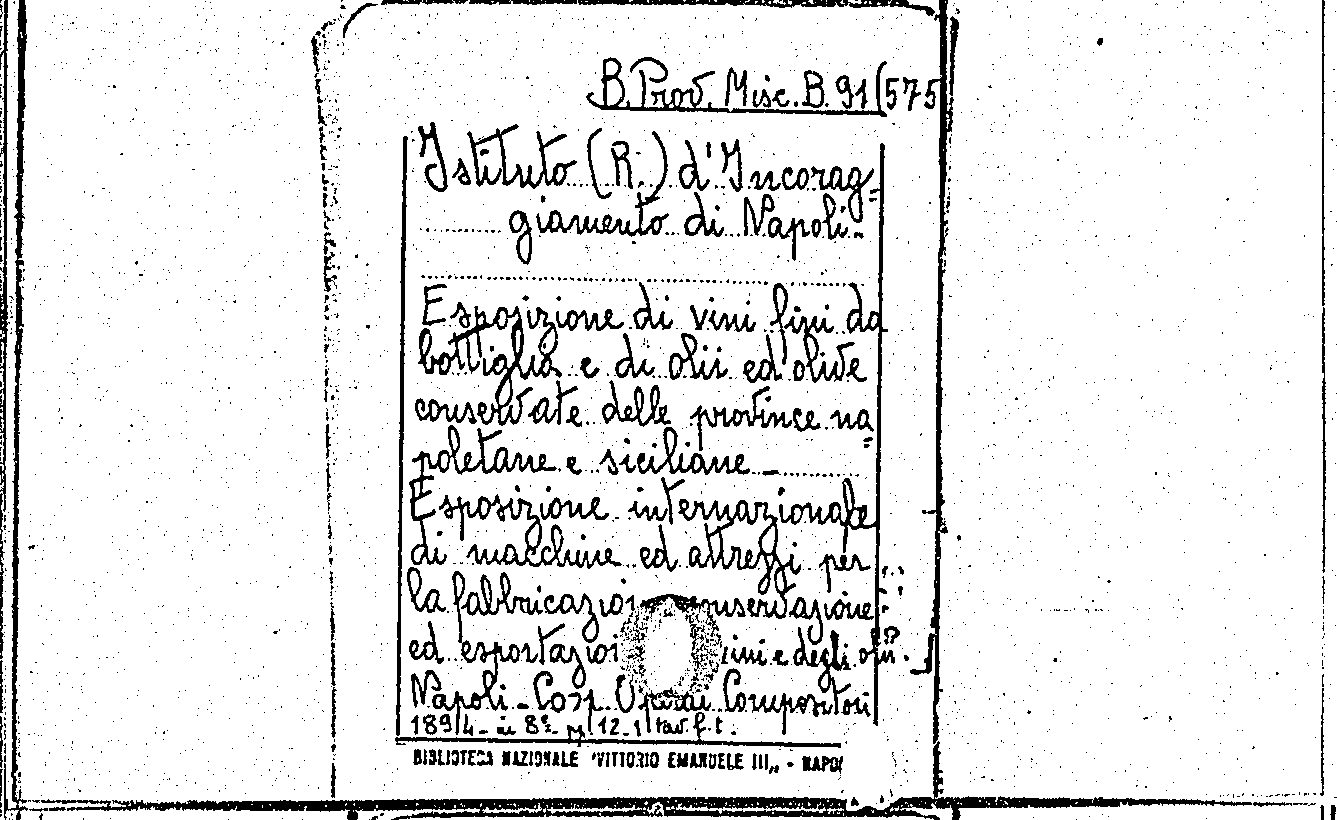 B. Prov. Misc. B. 91(575
Istituto (R.) d'Incorag=
giamento di Napoli-
Esposizione di vini fini da
bottiglia e di olii ed olive
conservate delle province na=
poletane e siciliane -
Esposizione internazionale
di macchine ed attrezzi per
la fabbricazio conservazione
ed esportazio vini e degli olii.
Napoli - Coop. Operai Compositori
1894 - in 8º pp 12 - 1 tav. f. t.
BIBLIOTECA NAZIONALE "VITTORIO EMANUELE III„ - NAPO